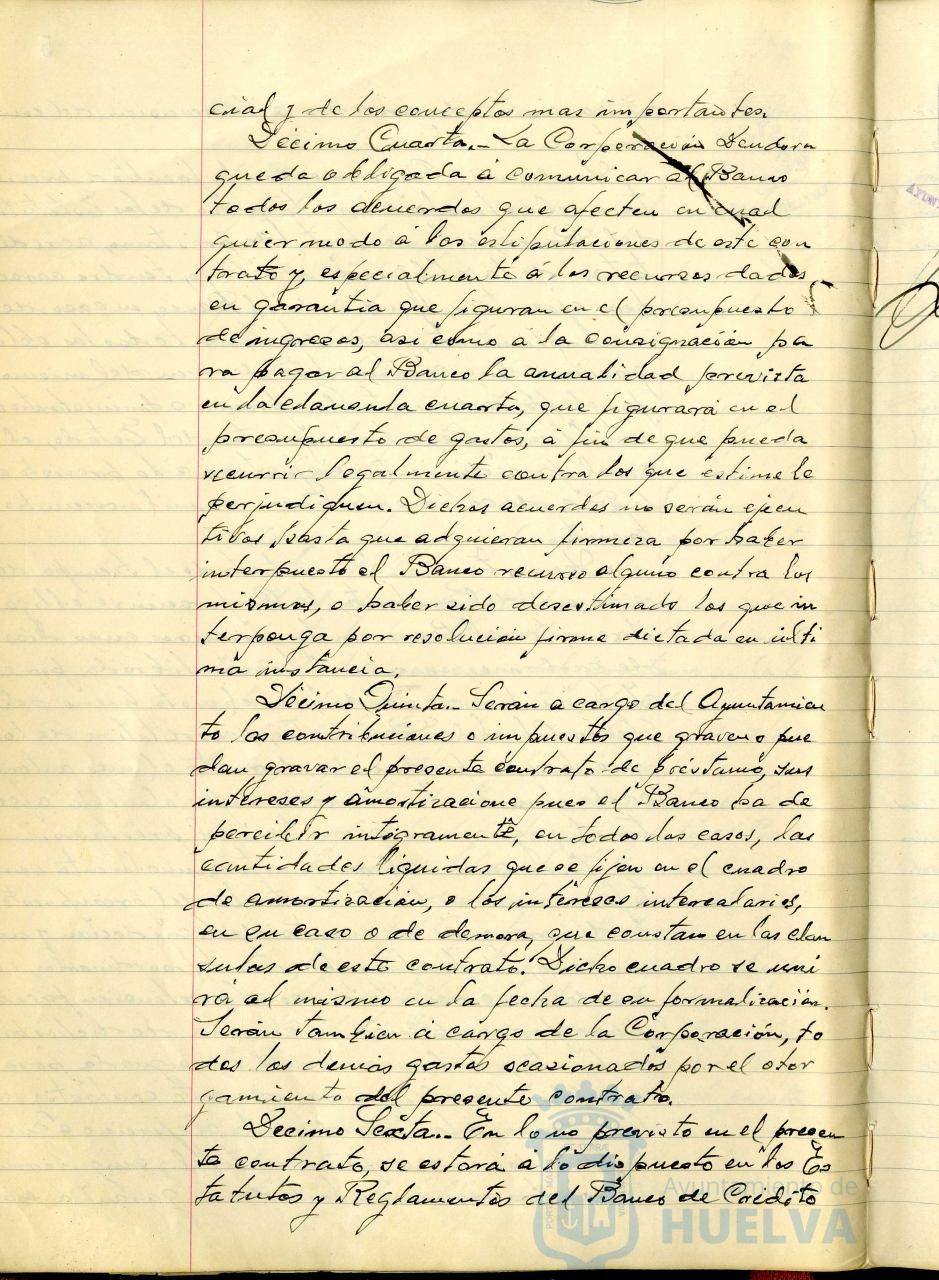 cial y de los conceptos mas importantes.
Décimo Cuarta.- La Corporación Deudora
queda obligada á comunicar al Banco
todos los acuerdos que afecten en cual
quier modo á las estipulaciones de este con
trato y, especialmente á los recursos dados
en garantia que figuran en el presupuesto
de ingresos, asi como á la consignación pa
ra pagar al Banco la anualidad prevista
en la claúsula cuarta, que figurará en el
presupuesto de gastos, á fin de que pueda
recurrir legalmente contra los que estime le
perjudiquen. Dichos acuerdos no serán ejecu
tivos hasta que adquieran firmeza por haber
interpuesto el Banco recurso alguno contra los
mismos, o haber sido desestimado los que in
terponga por resolución firme dictada en últi
ma instancia.
Décimo Quinta.- Serán a cargo del Ayuntamien
to las contribuciones o impuestos que graven o pue
dan gravar el presente contrato de préstamo, sus
intereses y amortizacione pues el Banco ha de
percibir integramente, en todos los casos, las
cantidades liquidas que se fijen en el cuadro
de amortización, o los intereses intercalarios,
en su caso o de demora, que constan en las clau
sulas de este contrato. Dicho cuadro se uni
rá al mismo en la fecha de su formalización.
Serán tambien á cargo de la Corporación, to
dos los demás gastos ocasionados por el otor
gamiento del presente contrato.
Decimo Sexta.- En lo no previsto en el presen
te contrato, se estará á lo dispuesto en los Es
tatutos y Reglamentos del Banco de Crédito
Ayuntamiento de
HUELVA